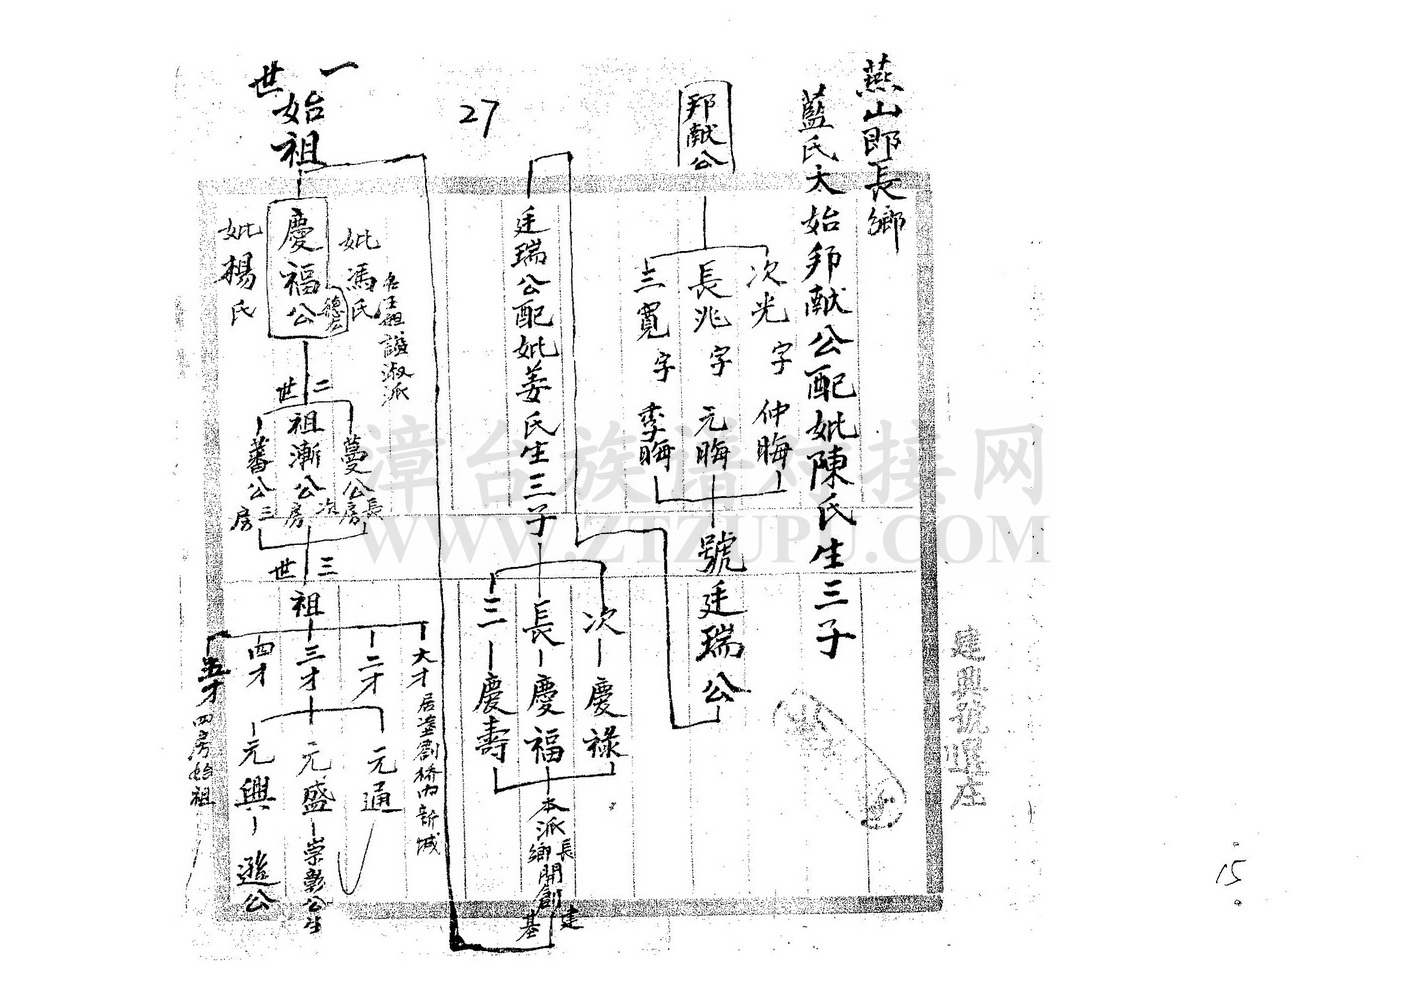 燕山郎長鄉
藍氏太始邦献公配妣陳氏生三子
邦献公
次光字仲晦
長兆字元晦
三寬字季晦
號廷瑞公
廷瑞公配妣姜氏生三子
次慶祿
長慶福
三慶壽
本派長鄉開創建基
27
一世
始祖
慶福公
德宏
妣馮氏
妣楊氏
二世
祖漸公次房
蔓公長房
蕃公三房
三世
祖
大才
二才
三才
四才
五才四房始祖
元通
元盛
崇彰公生
元興
遜公
建興號
15
漳台族谱对接网
WWW.ZTZUPU.COM